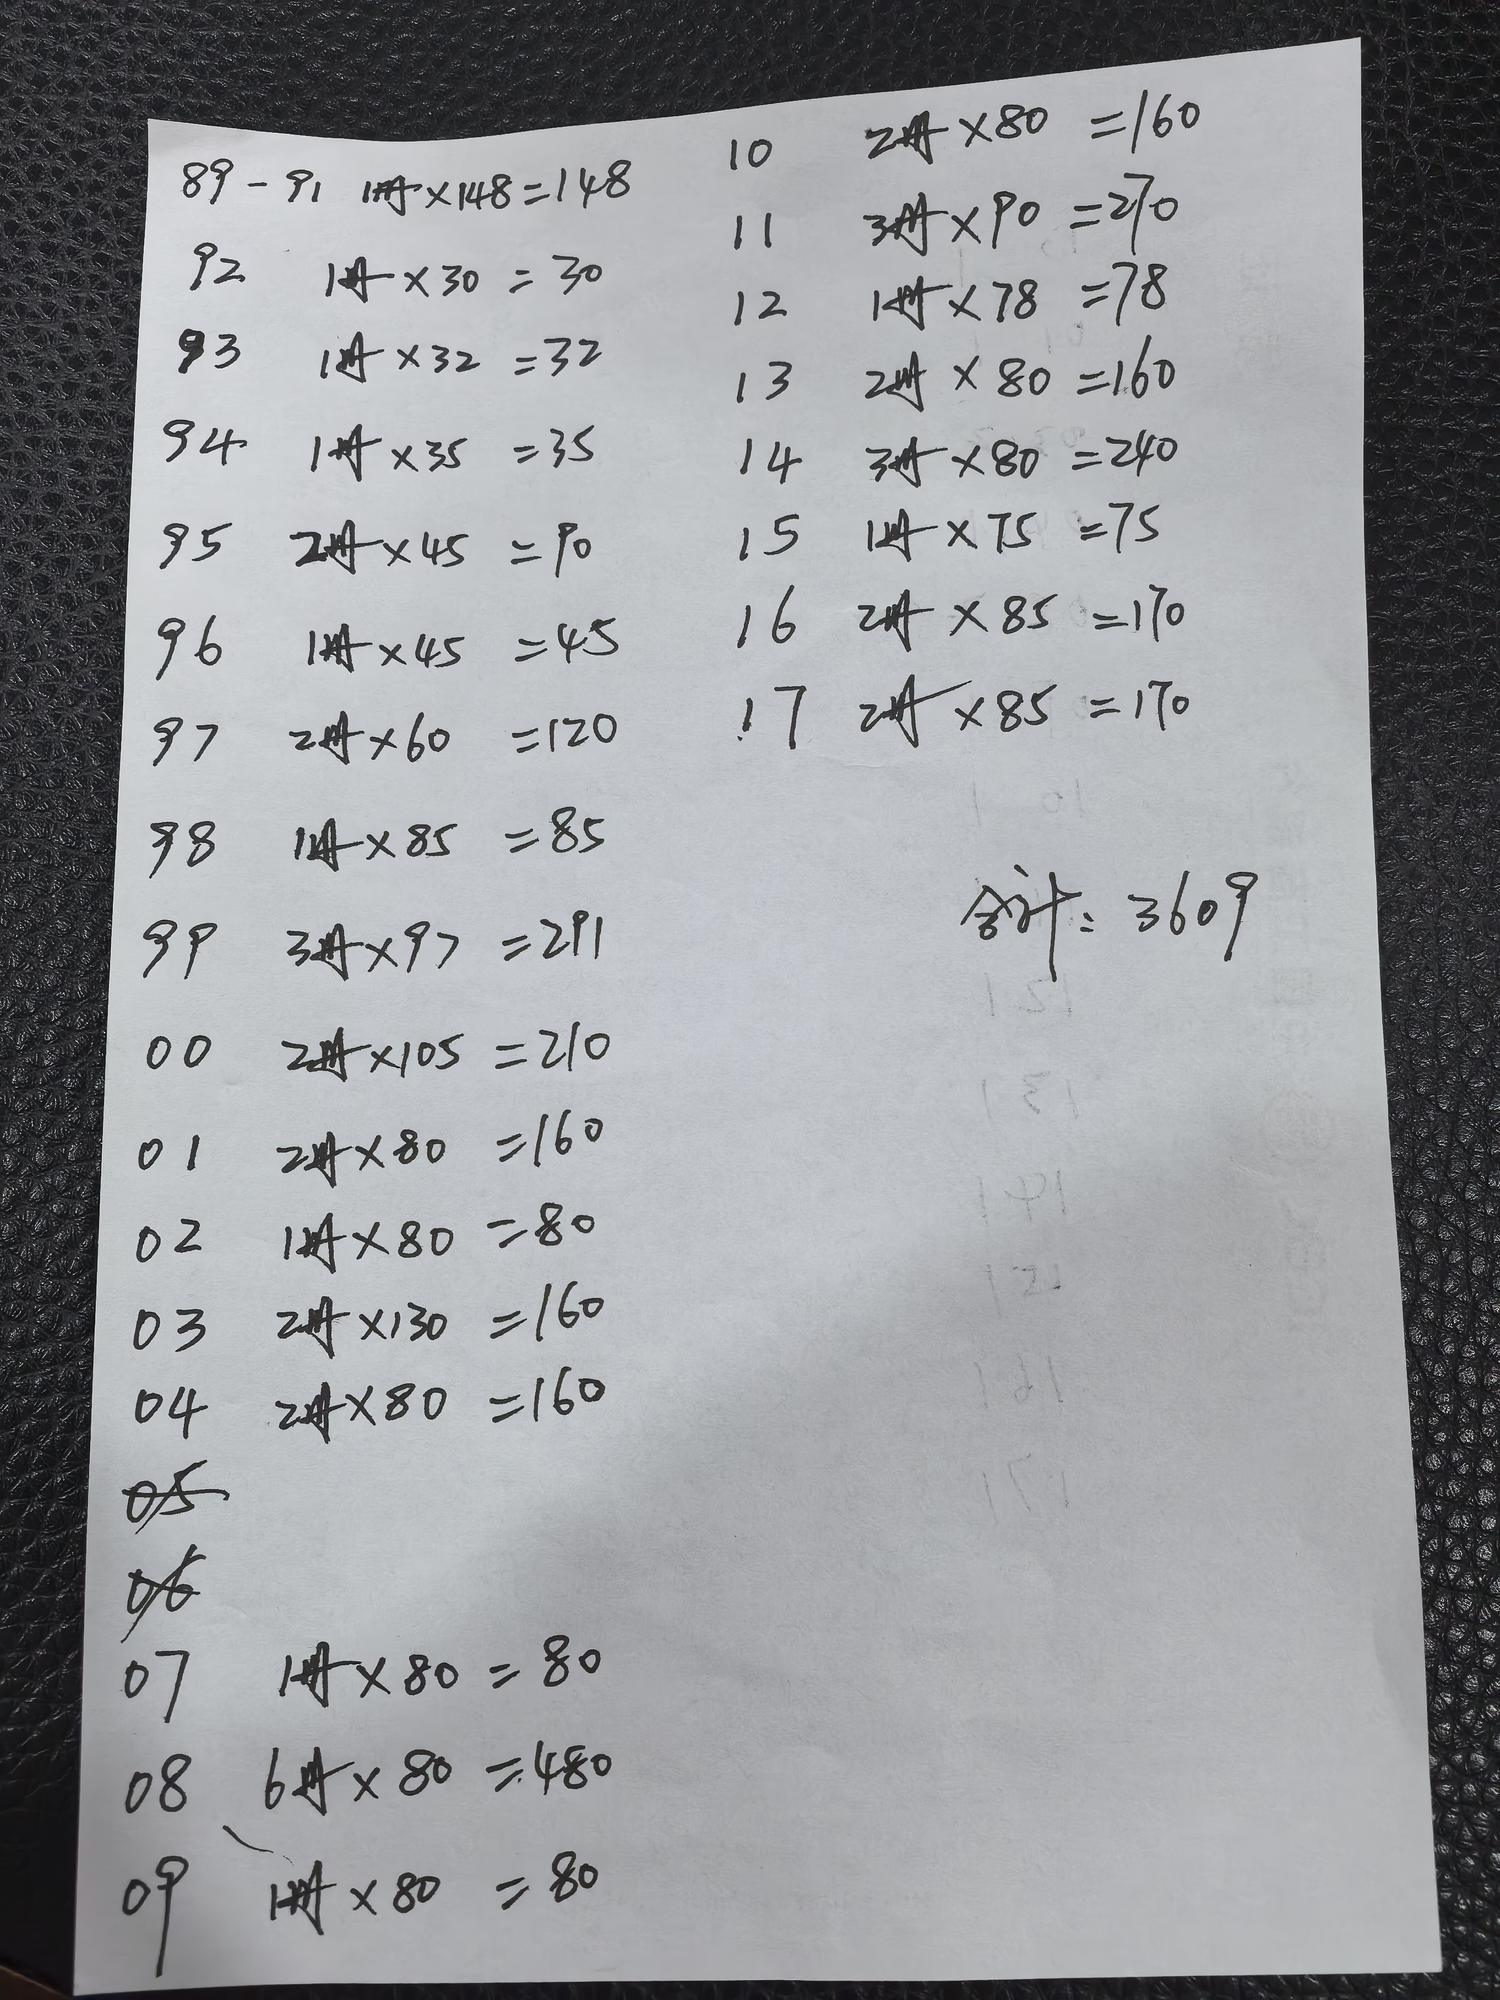 89-91 1册×148=148
92 1册×30=30
93 1册×32=32
94 1册×35=35
95 2册×45=90
96 1册×45=45
97 2册×60=120
98 1册×85=85
99 3册×97=291
00 2册×105=210
01 2册×80=160
02 1册×80=80
03 2册×130=160
04 2册×80=160
05
06
07 1册×80=80
08 6册×80=480
09 1册×80=80
10 2册×80=160
11 3册×90=270
12 1册×78=78
13 2册×80=160
14 3册×80=240
15 1册×75=75
16 2册×85=170
17 2册×85=170
合计:3609